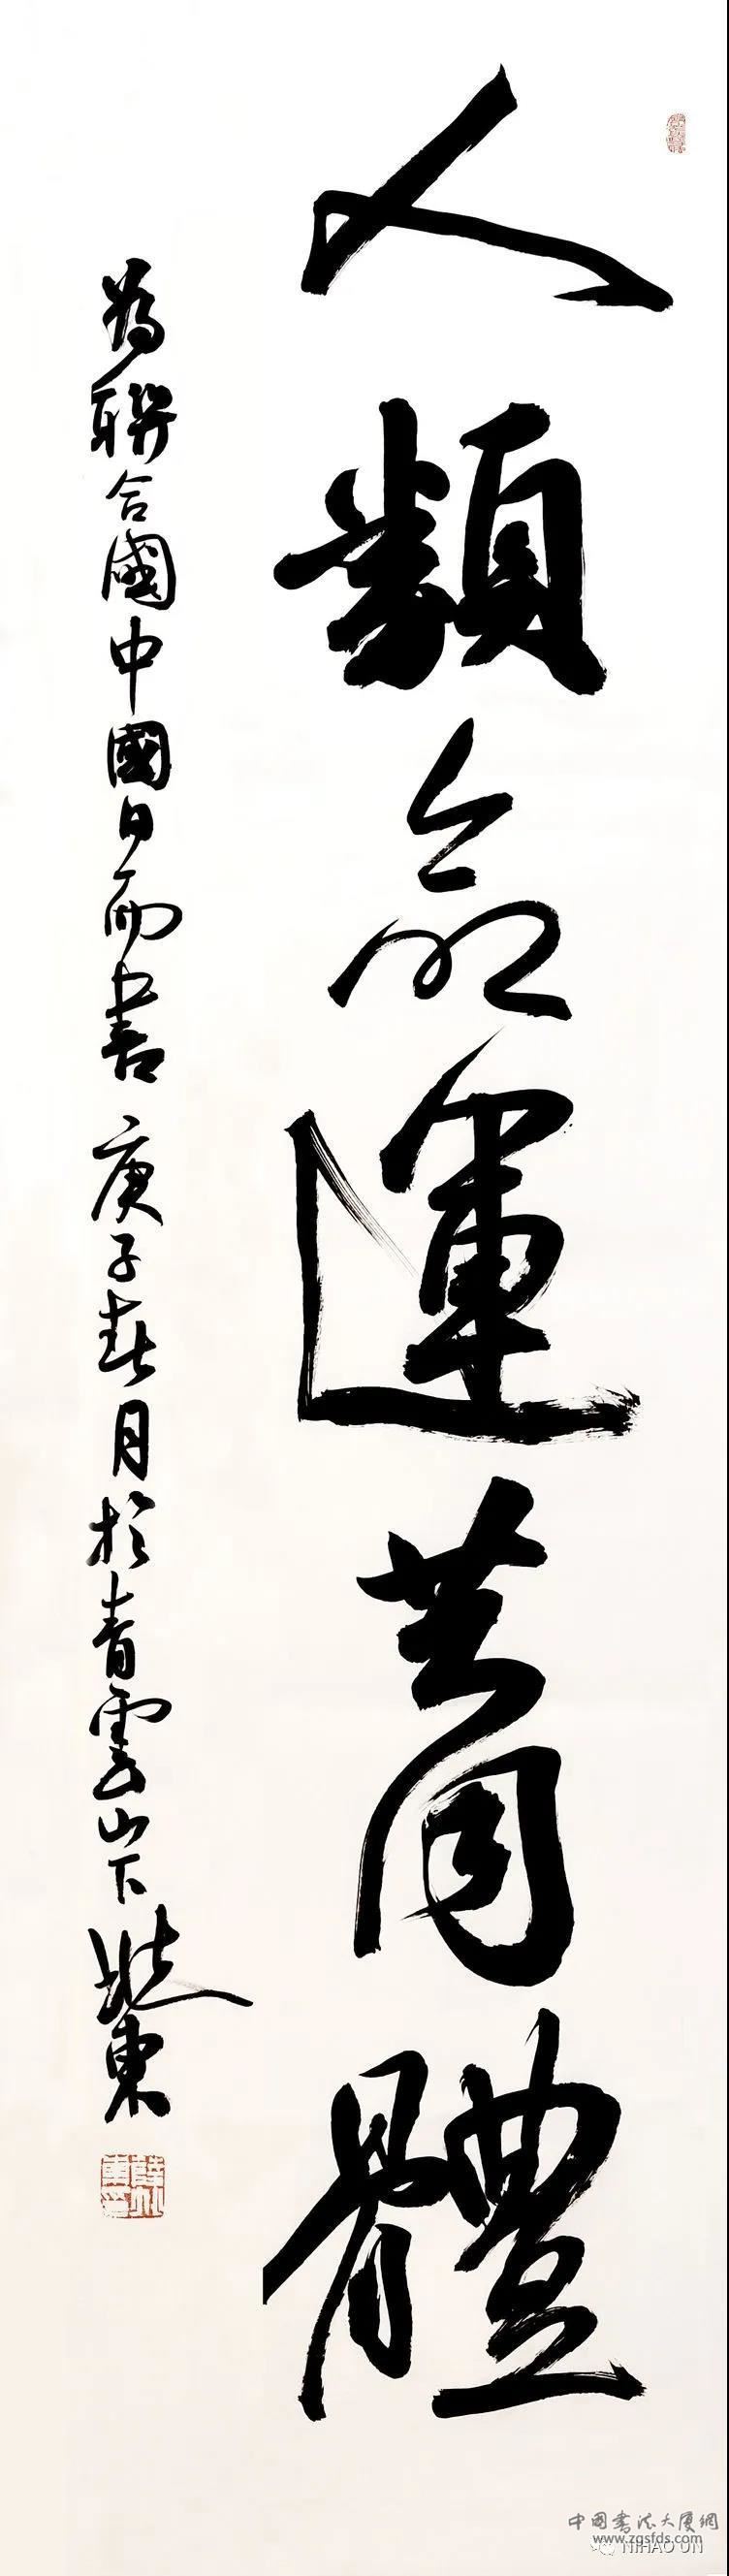 人類命運共同體
為聯合國中國日而書 庚子春月於青雲山下 東
中國書法大厦網
www.zgsfds.com
NIHAO UN